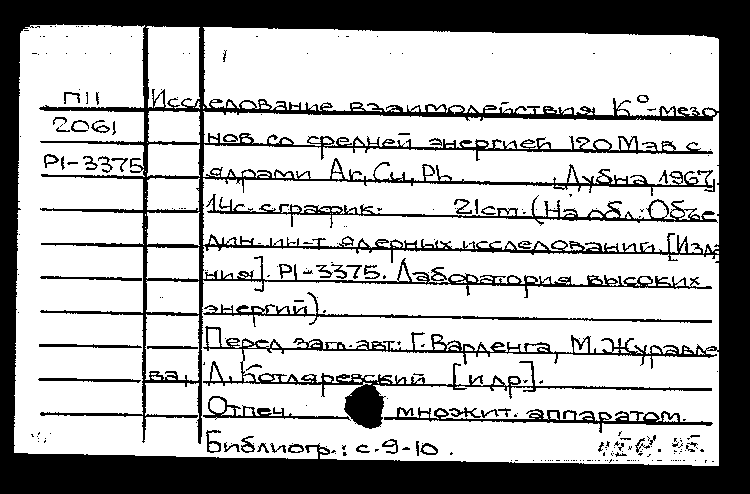 П11 Исследование взаимодействия К⁰-мезо
2061 нов со средней энергией 120 Мэв с
Р1-3375 ядрами Ar, Cu, Pb. [Дубна, 1967]
14с. с график. 21 cm. (На обл.: Объе-
дин. ин-т ядерных исследований. [Изда
ния]. Р1-3375. Лаборатория высоких
энергий).
Перед загл. авт.: Г. Варденга, М. Журавле
ва, Л. Котляревский [и др.].
Отпеч. множит. аппаратом.
Библиогр.: с. 9-10.